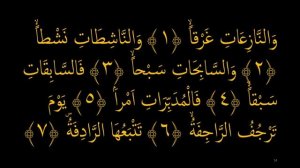 وَالنَّازِعَاتِ غَرْقاً ﴿١﴾ وَالنَّاشِطَاتِ نَشْطاً
﴿٢﴾ وَالسَّابِحَاتِ سَبْحاً ﴿٣﴾ فَالسَّابِقَاتِ
سَبْقاً ﴿٤﴾ فَالْمُدَبِّرَاتِ أَمْراً ﴿٥﴾ يَوْمَ
تَرْجُفُ الرَّاجِفَةُ ﴿٦﴾ تَتْبَعُهَا الرَّادِفَةُ ﴿٧﴾